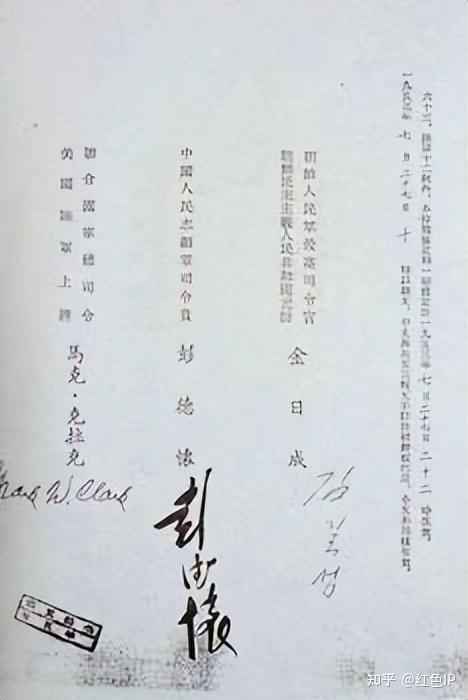 六十三、除第十二款外，本停戰協定的一切規定於一九五三年 七 月 二十七 日 二十二 時生效。
一九五三年 七 月 二十七 日 十 時以朝文、中文與英文
朝鮮人民軍最高司令官
朝鮮民主主義人民共和國元帥
金日成
김일성
中國人民志願軍司令員
彭德懷
彭德懷
聯合國軍總司令
美國陸軍上將
馬克·克拉克
Mark W. Clark
知乎 @红色IP